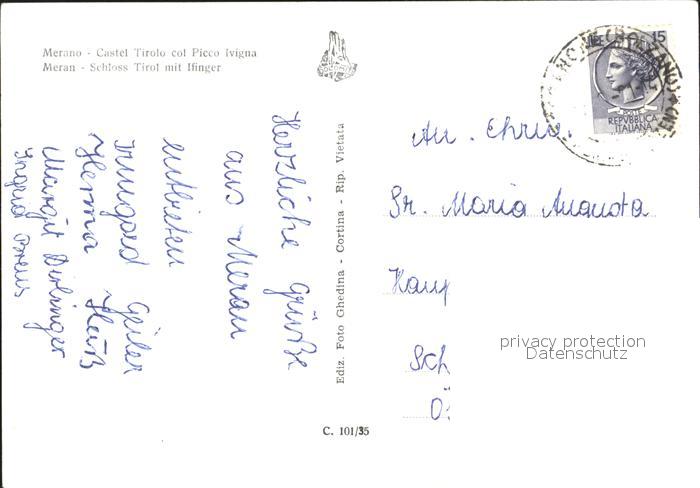 Merano - Castel Tirolo col Picco Ivigna
Meran - Schloss Tirol mit Ifinger
Herzliche Grüße
aus Meran
entbieten
Irmgard Geiler
Herma
Margit
Ingrid
Ediz. Foto Ghedina - Cortina - Rip. Vietata
C. 101/35
15
POSTE
REPVBBLICA
ITALIANA
An. Ehrw.
Sr. Maria Augusta
Kamp
Sch
Ö
privacy protection
Datenschutz